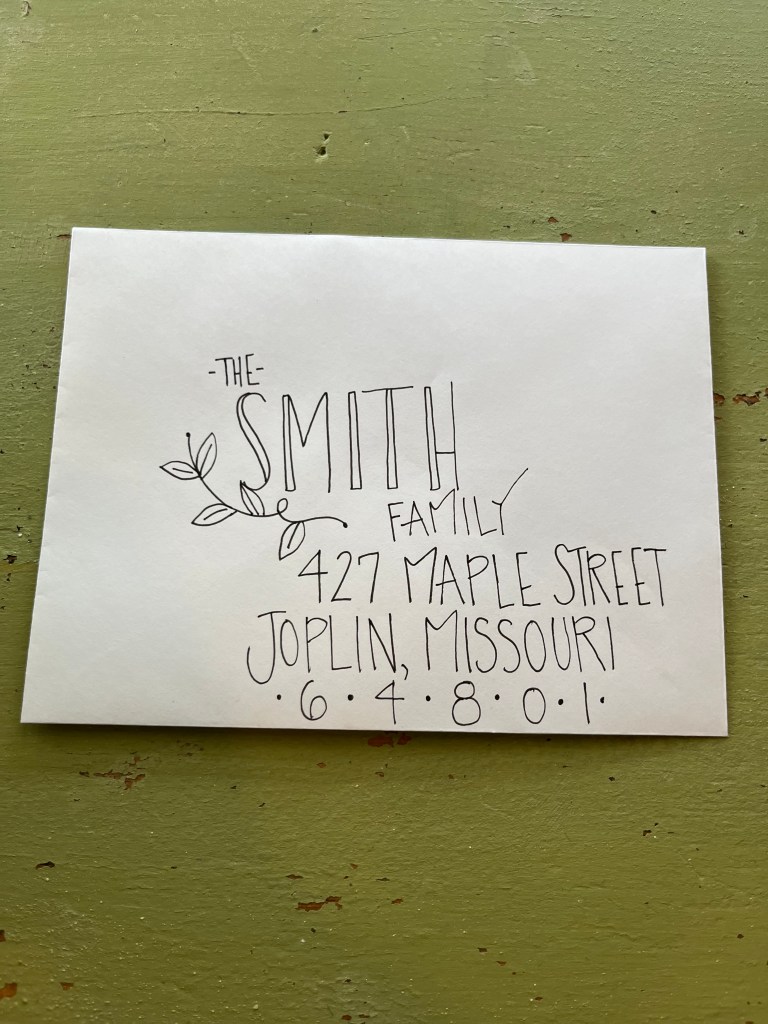 -THE-
SMITH
FAMILY
427 MAPLE STREET
JOPLIN, MISSOURI
·6·4·8·0·1·